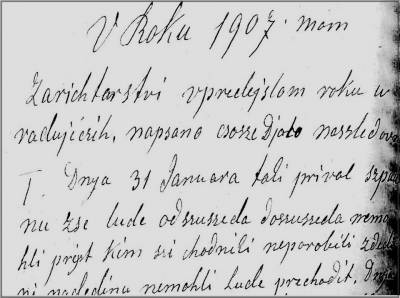 V Roku 1907. mom
Zarichtarstvi vpredejslom roku u
radujićzih, napsano csosze Djalo naszledov
I. Dnya 31 Januara tali prival szpa
nu zse lude odszuszeda doszuszeda nemo
hli prejst Kim szi chodnili neporobili zdedi
ni nagledinu nemohli lude prechodit, Dnya